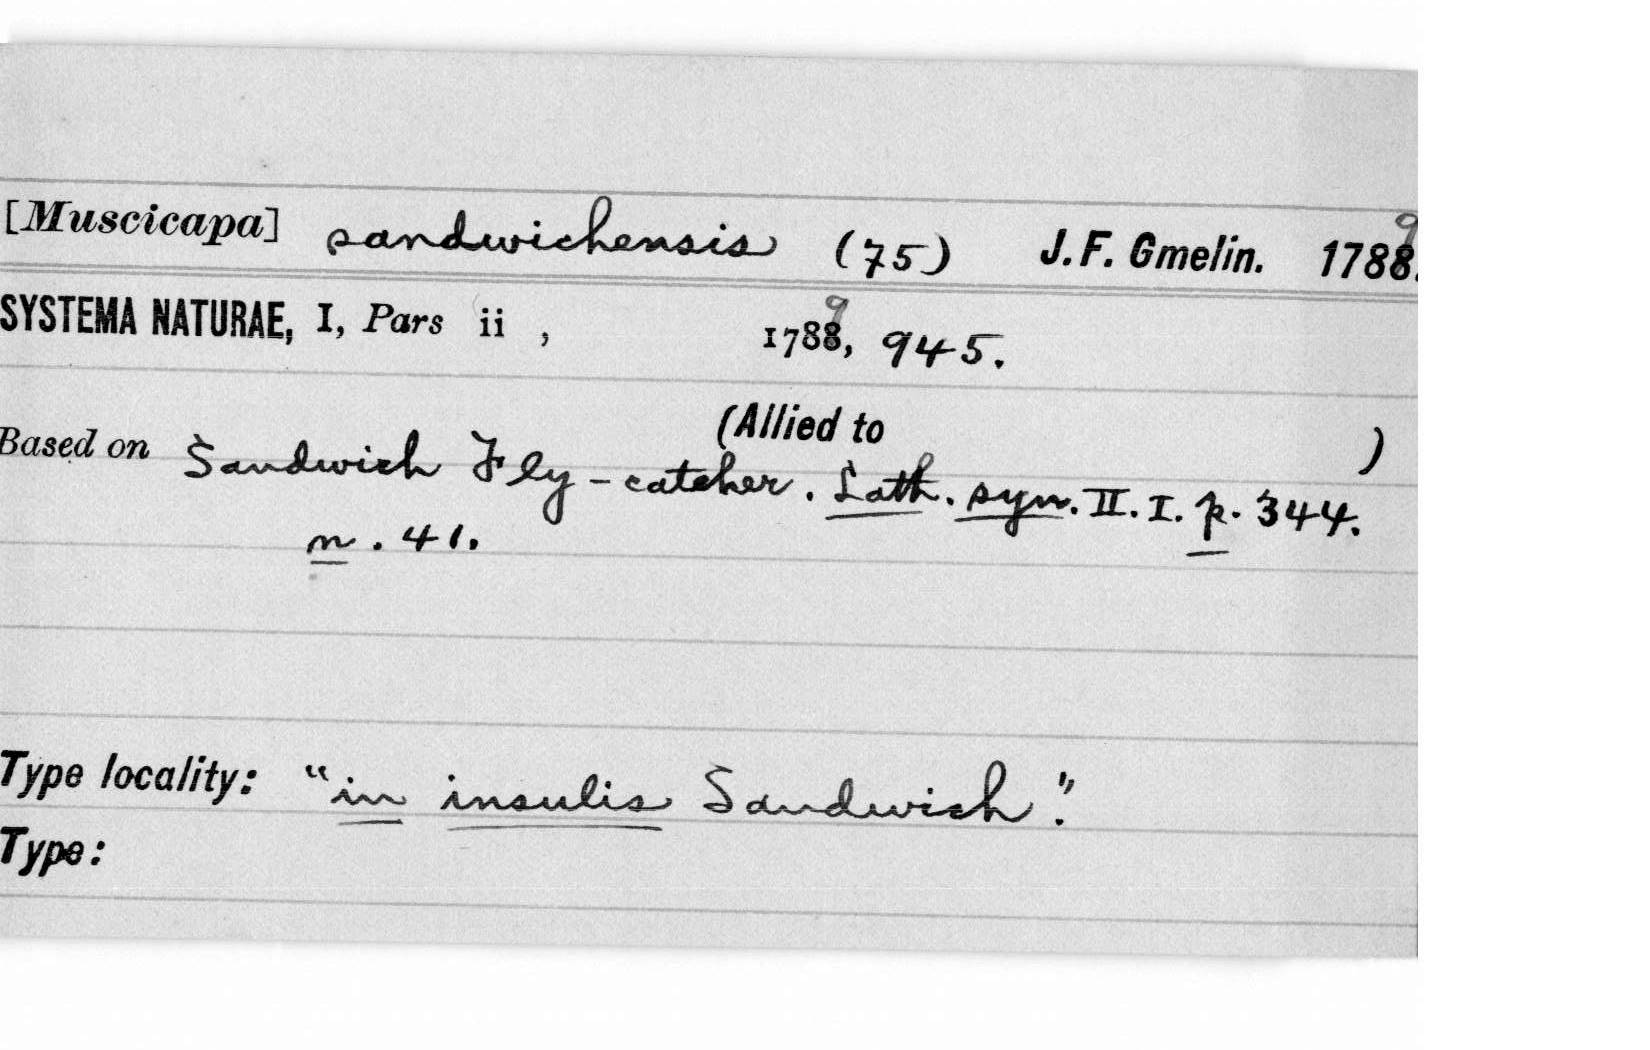 [Muscicapa] sandwichensis (75) J. F. Gmelin. 1788. 9
SYSTEMA NATURAE, I, Pars ii , 1788, 9 945.
(Allied to )
Based on Sandwich Fly-catcher. Lath. syn. II. I. p. 344.
n. 41.
Type locality: "in insulis Sandwich".
Type: